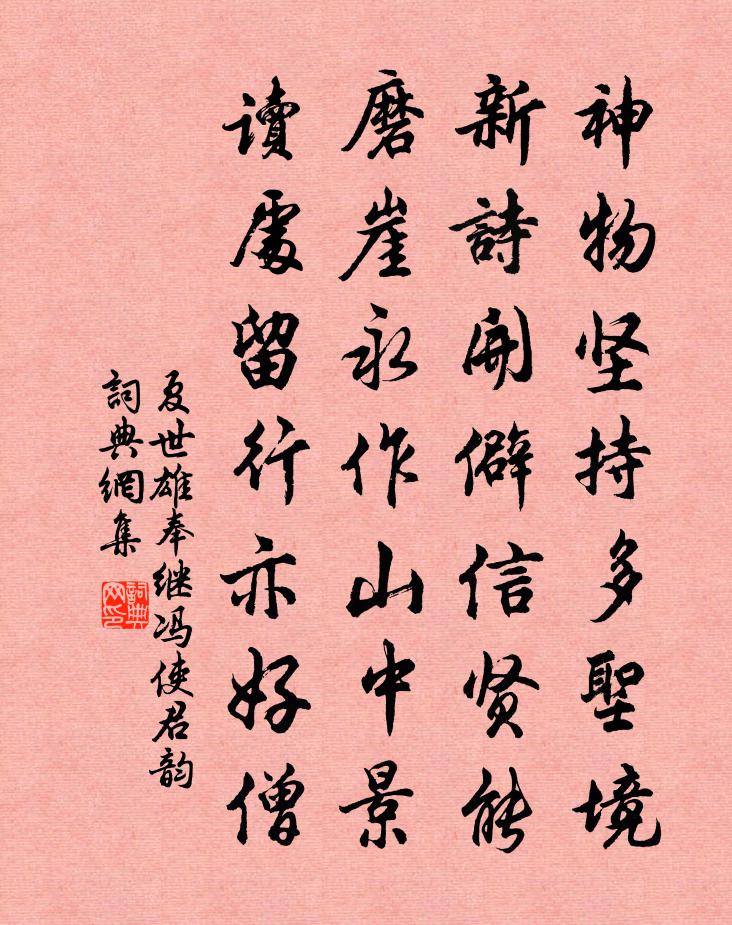 神物坚持多聖境
新詩開僻信贤能
磨崖永作山中景
讀處留行亦好僧
夏世雄奉继冯使君韵
詞典網集
詞典网印